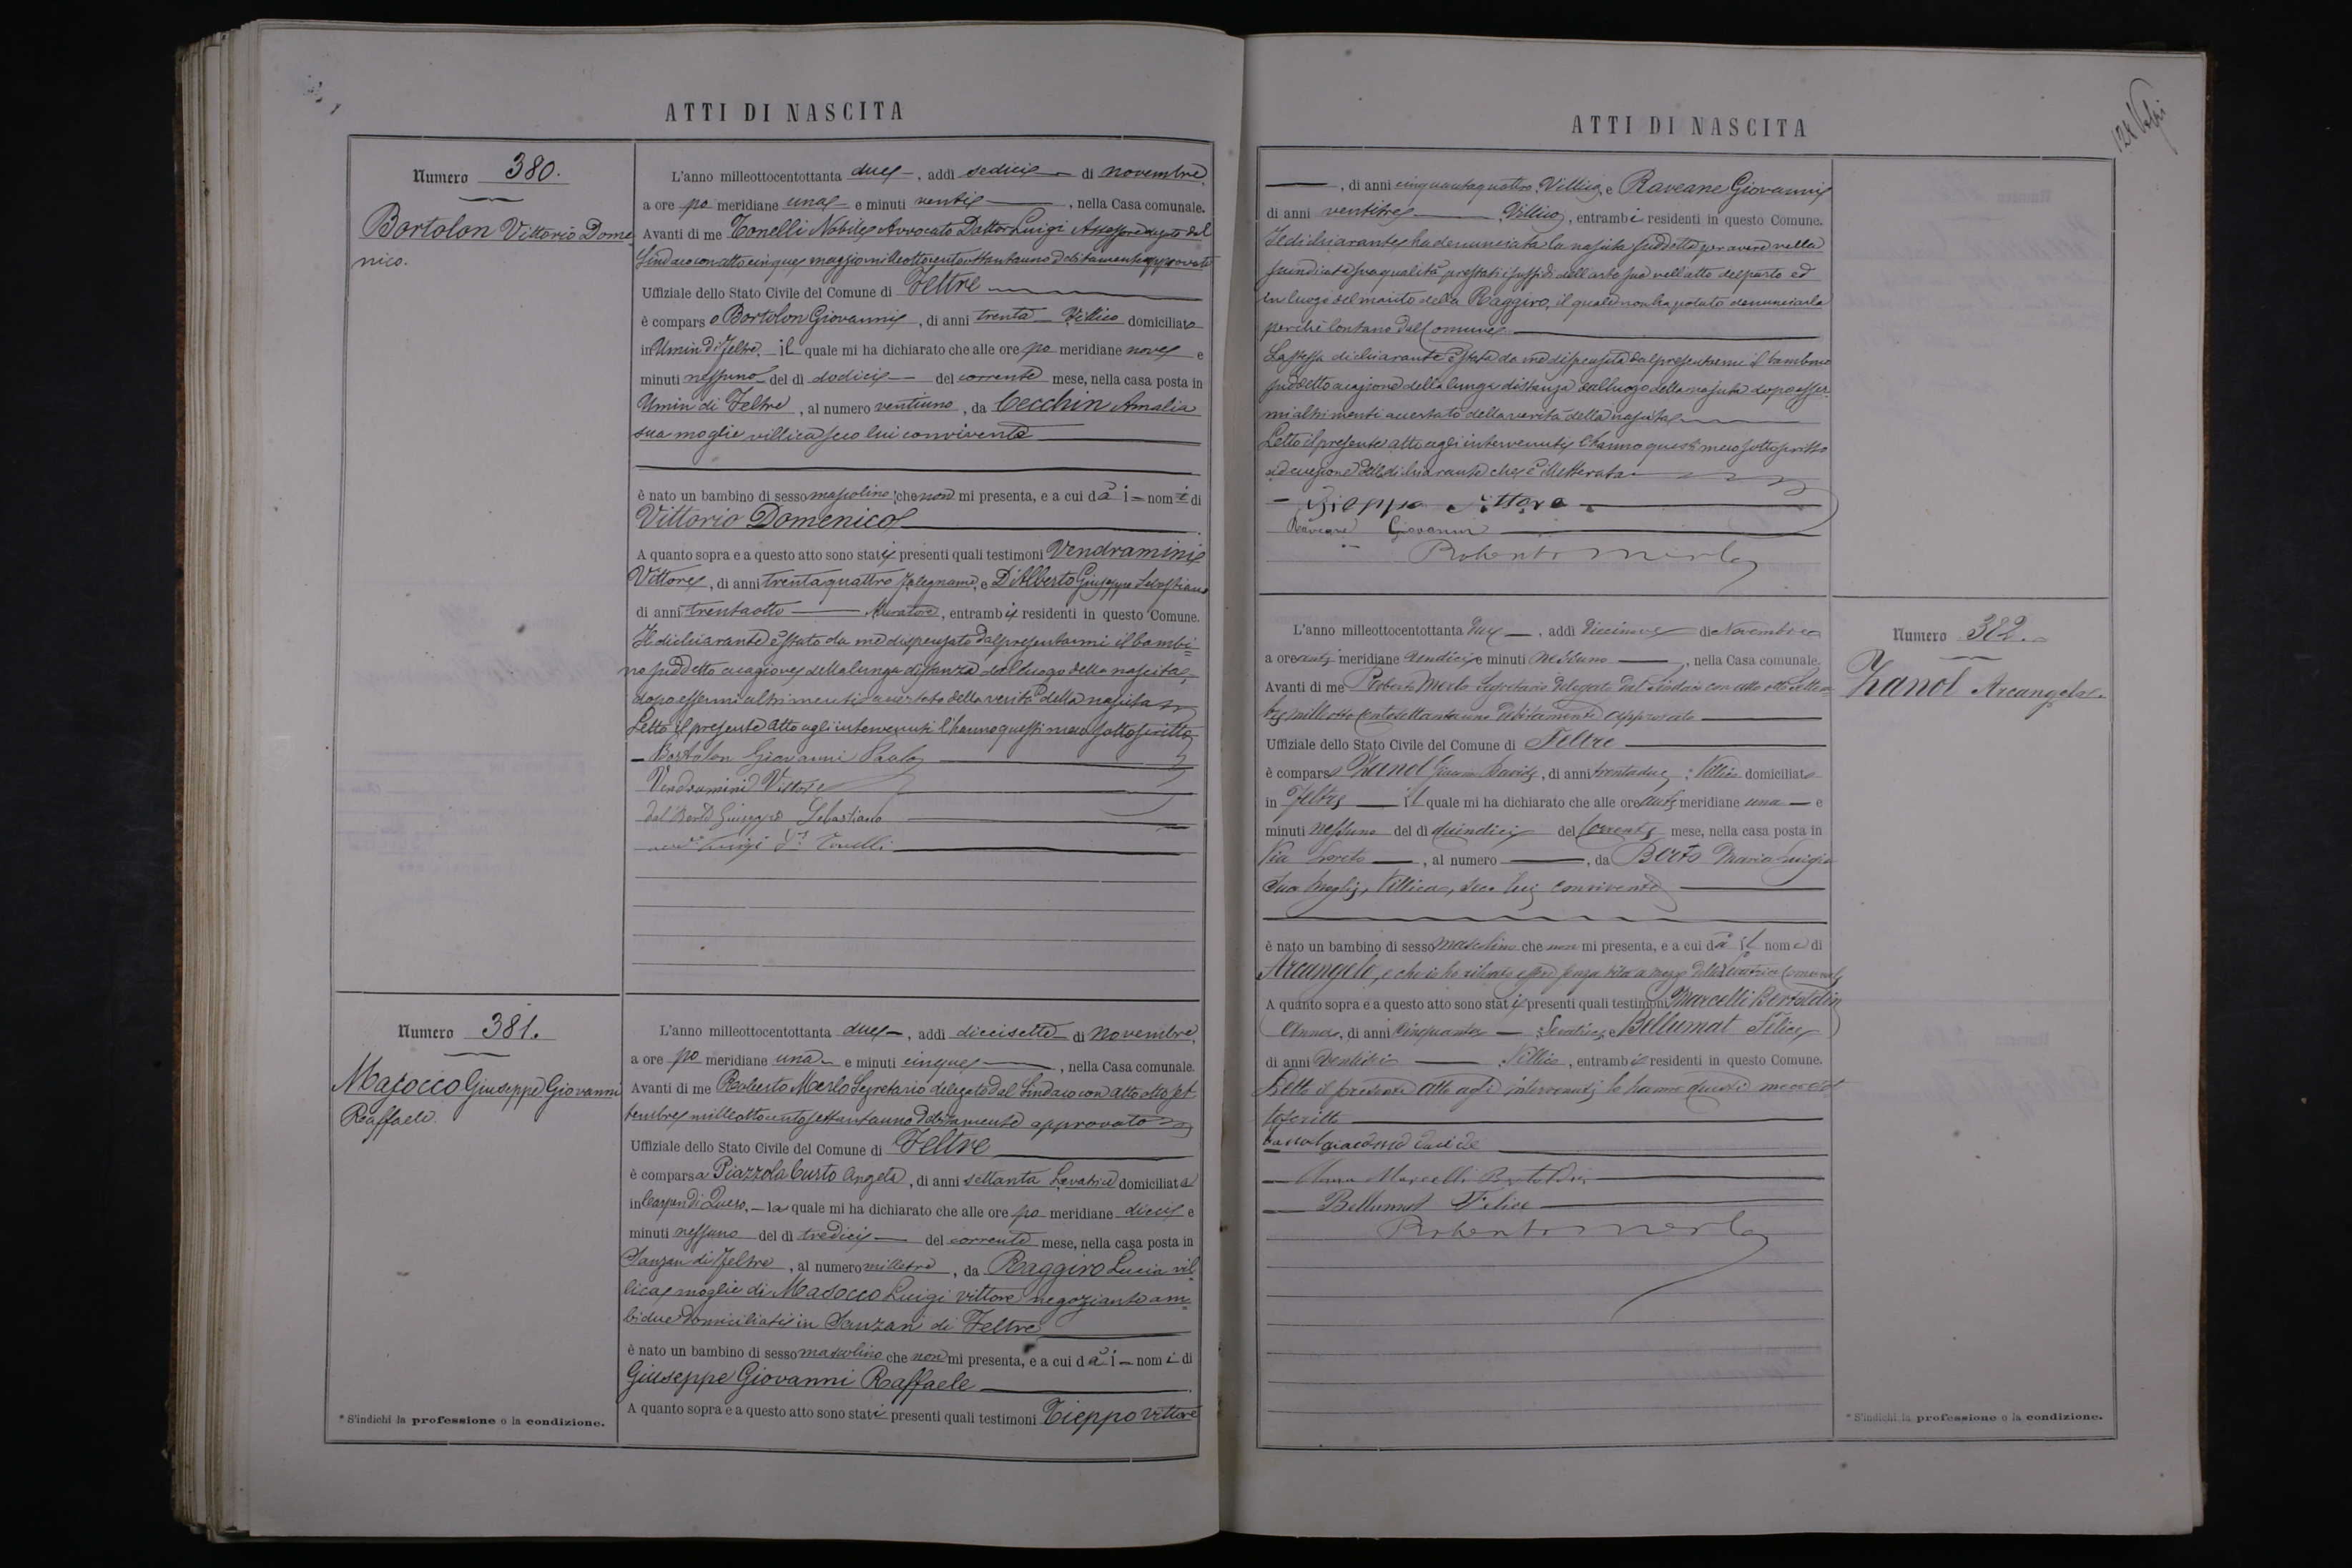 ATTI DI NASCITA
Numero 380.
Bortolon Vittorio Dome
nico.
L'anno milleottocentottanta due, addì sedici di novembre,
a ore po meridiane una e minuti venti, nella Casa comunale.
Avanti di me Tonelli Nobile Avvocato Dottor Luigi Assessore delegato dal
Sindaco con atto cinque maggio milleottocentottantauno debitamente approvato
Uffiziale dello Stato Civile del Comune di Feltre
è comparso Bortolon Giovanni, di anni trenta Villico domiciliato
in Umin di Feltre, il quale mi ha dichiarato che alle ore po meridiane nove e
minuti nessuno del dì dodici del corrente mese, nella casa posta in
Umin di Feltre, al numero ventiuno, da Cecchin Amalia
sua moglie villica seco lui convivente
è nato un bambino di sesso mascolino che non mi presenta, e a cui dà i nomi di
Vittorio Domenico
A quanto sopra e a questo atto sono stati presenti quali testimoni Vendramini
Vittore, di anni trentaquattro falegname, e D'Alberto Giuseppe Sebastiano
di anni trentaotto Muratore, entrambi residenti in questo Comune.
Il dichiarante è stato da me dispensato dal presentarmi il bambi=
no suddetto a cagione della lunga distanza dal luogo della nascita,
dopo essermi altrimenti accertato della verità della nascita
Letto il presente atto agli intervenuti l'hanno questi meco sottoscritto
Bortolon Giovanni Paolo
Vendramini Vittore
Giuseppe Sebastiano
Luigi Dr Tonelli
Numero 381.
Masocco Giuseppe Giovanni
Raffaele.
L'anno milleottocentottanta due, addì diecisette di novembre,
a ore po meridiane una e minuti cinque, nella Casa comunale.
Avanti di me Roberto Merlo Segretario delegato dal Sindaco con atto otto set
tembre milleottocentosettantauno debitamente approvato
Uffiziale dello Stato Civile del Comune di Feltre
è comparsa Piazzola Curto Angela, di anni settanta Levatrice domiciliata
in Carpen di Quero, la quale mi ha dichiarato che alle ore po meridiane dieci e
minuti nessuno del dì tredici del corrente mese, nella casa posta in
Sanzan di Feltre, al numero milletre, da Raggiro Lucia vil
lica moglie di Masocco Luigi Vittore negoziante am
bidue domiciliati in Sanzan di Feltre
è nato un bambino di sesso mascolino che non mi presenta, e a cui dà i nomi di
Giuseppe Giovanni Raffaele
A quanto sopra e a questo atto sono stati presenti quali testimoni Tieppo Vittore
* S'indichi la professione o la condizione.
ATTI DI NASCITA
124
, di anni cinquantaquattro, Villico, e Raveane Giovanni
di anni ventitre Villico, entrambi residenti in questo Comune.
La dichiarante ha denunciata la nascita suddetta per avere nella
suindicata sua qualità prestati i sussidi dell'arte sua nell'atto del parto ed
in luogo del marito della Raggiro, il quale non ha potuto denunciarla
perchè lontano dal Comune
La stessa dichiarante è stata da me dispensata dal presentarmi il bambino
suddetto a cagione della lunga distanza dal luogo della nascita dopo esser
mi altrimenti accertato della verità della nascita
Letto il presente atto agli intervenuti l'hanno questi meco sottoscritto
ad eccezione della dichiarante che è illetterata
Tieppo Vittore
Raveane Giovanni
Roberto Merlo
Numero 382.
Zanol Arcangelo.
L'anno milleottocentottanta due, addì diecinove di Novembre
a ore anti meridiane undici e minuti nessuno, nella Casa comunale.
Avanti di me Roberto Merlo Segretario delegato dal Sindaco con atto otto Settem
bre mille otto cento settantauno debitamente approvato
Uffiziale dello Stato Civile del Comune di Feltre
è comparso Zanol Davide, di anni trentadue, Villico domiciliato
in Feltre il quale mi ha dichiarato che alle ore anti meridiane una e
minuti nessuno del dì quindici del corrente mese, nella casa posta in
Via Loreto, al numero, da Berto Maria Luigia
sua moglie, Villica, seco lui convivente
è nato un bambino di sesso mascolino che non mi presenta, e a cui dà il nome di
Arcangelo, e che io ho rilevato essere senza vita a mezzo della Levatrice Comunale
A quanto sopra e a questo atto sono stati presenti quali testimoni Marcelli Bertoldin
Anna, di anni cinquanta Levatrice, e Bellumat Felice
di anni ventidue Villico, entrambi residenti in questo Comune.
Letto il presente atto agli intervenuti lo hanno questi meco sot
toscritto
Zanol Giacomo Davide
Anna Marcelli Bertoldin
Bellumat Felice
Roberto Merlo
* S'indichi la professione o la condizione.